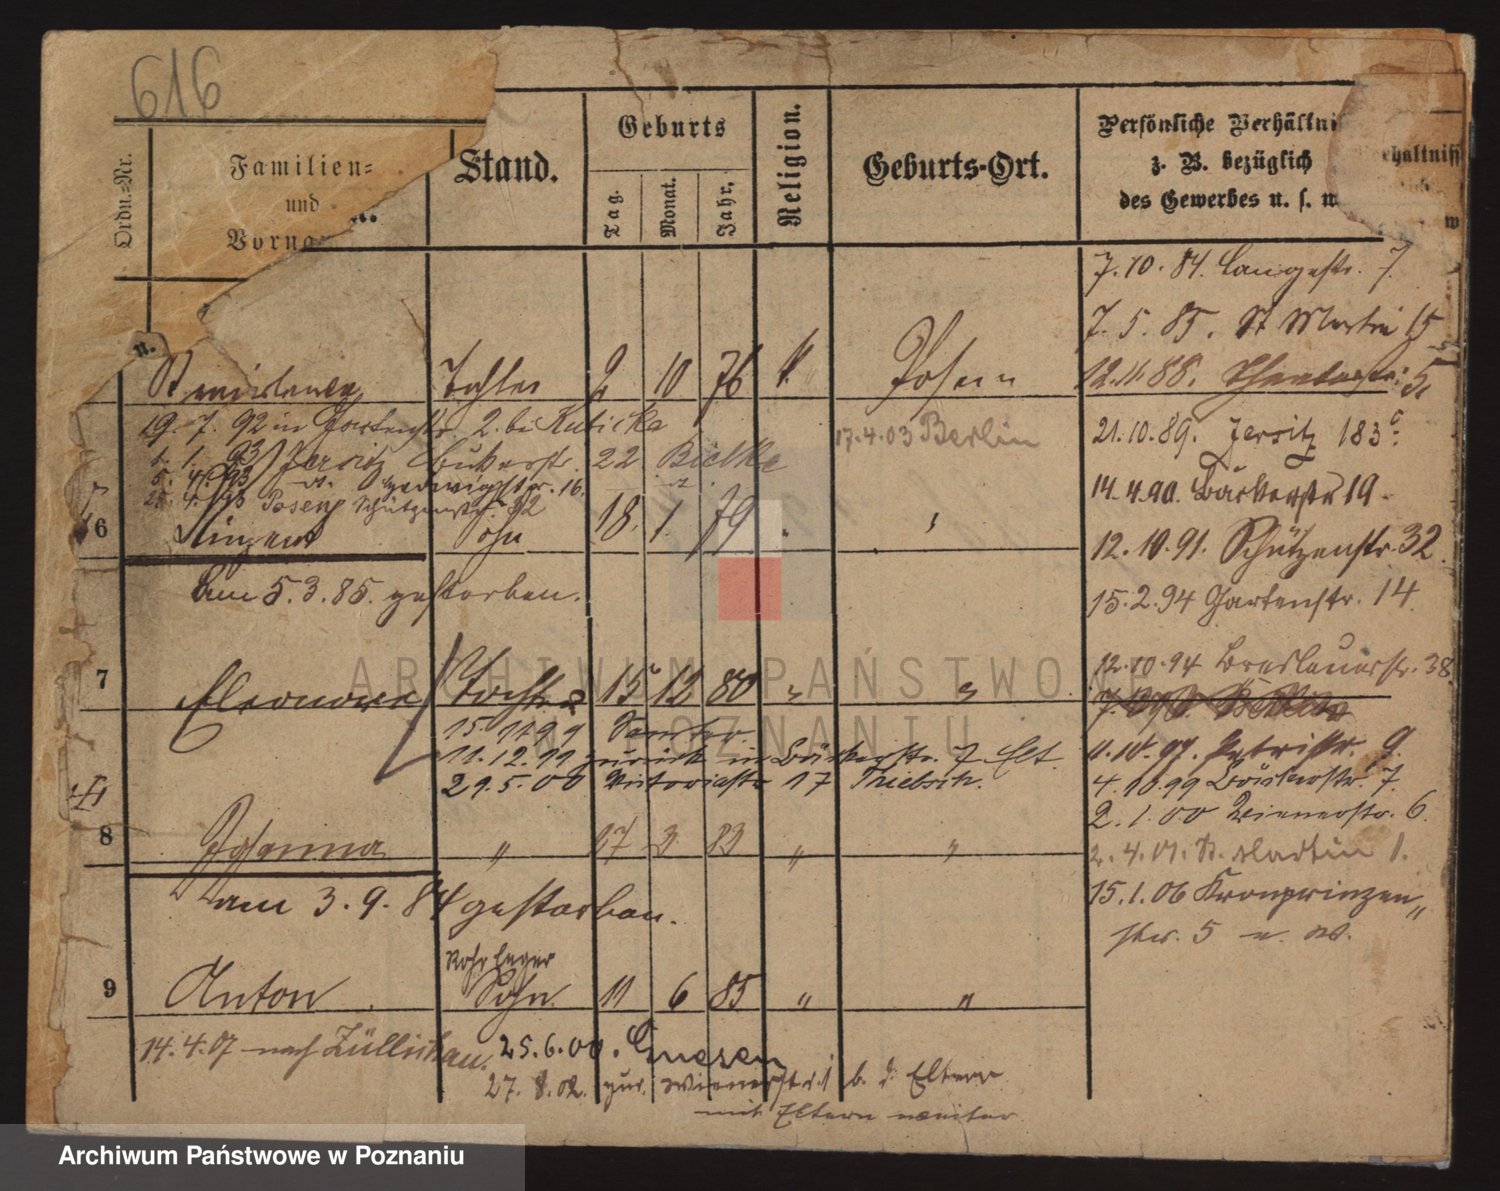 616
Ordn.-Nr.
Familien-
und
Stand.
Geburts
Tag.
Monat.
Jahr.
Religion.
Geburts-Ort.
Persönliche Verhältni
z. B. bezüglich
des Gewerbes u. s. w
7.10.84. Langestr. 7.
7.5.85. St Martin 15
Tochter 2 10 76 k. Posen
12.11.88. 5.
19.7.92 in Gartenstr. 2. bei Kubicka
17.4.03 Berlin
21.10.89. Jersitz 183c.
1.1.93 Jersitz Bukerstr. 22 Bielke
5.4.93 Hedwigstr. 16.
Posen Schützenstr. 32
14.4.90. Bäckerstr 19.
6 Vinzent Sohn 18. 1. 79 "
12.10.91. Schützenstr. 32.
am 5.3.85. gestorben.
15.2.94 Gartenstr. 14
12.10.94 Breslauerstr. 38.
7 Eleonora Tochter 15 12 80 " "
15.11.99 Samter
11.12.99 zurück in Bäckerstr. 7 Elt
29.5.00 Victoriastr 17
Petristr. 9.
4.10.99 Bäckerstr. 7.
2.1.00 Wienerstr. 6.
8 Johanna " 17 3 83 " "
2.4.01. St. Martin 1.
am 3.9.84 gestorben.
15.1.06 Kronprinzen„
str. 5 u. W.
Rohrleger
9 Anton Sohn. 11 6 85 " "
14.4.07 nach Züllichau.
25.6.00. Gnesen
27.8.02. zur. Wienerstr. 1 b. d. Eltern
mit Eltern weiter
ARCHIWUM PAŃSTWOWE
W POZNANIU
Archiwum Państwowe w Poznaniu